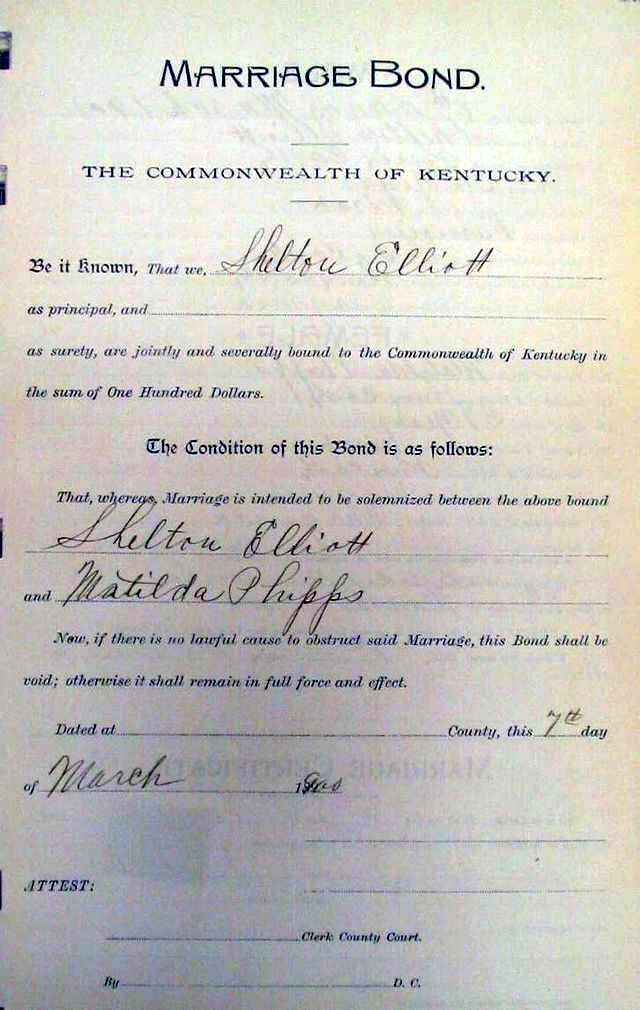 MARRIAGE BOND.
THE COMMONWEALTH OF KENTUCKY.
Be it Known, That we, Shelton Elliott
as principal, and
as surety, are jointly and severally bound to the Commonwealth of Kentucky in
the sum of One Hundred Dollars.
The Condition of this Bond is as follows:
That, whereas, Marriage is intended to be solemnized between the above bound
Shelton Elliott
and Matilda Phipps
Now, if there is no lawful cause to obstruct said Marriage, this Bond shall be
void; otherwise it shall remain in full force and effect.
Dated at County, this 7th day
of March
ATTEST:
Clerk County Court.
By D. C.